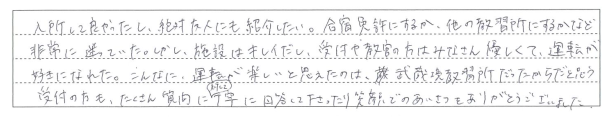 入所して良かったし、絶対友人にも紹介したい。合宿免許にするか、他の教習所にするかなど
非常に迷っていた。しかし、施設はキレイだし、受付や教官の方はみなさん優しくて、運転が
好きになれた。こんなに、運転が楽しいと思えたのは、教習所だったからだと思う
受付の方も、たくさん質問に対して丁寧に回答して下さったり笑顔でのあいさつもありがとうございました。